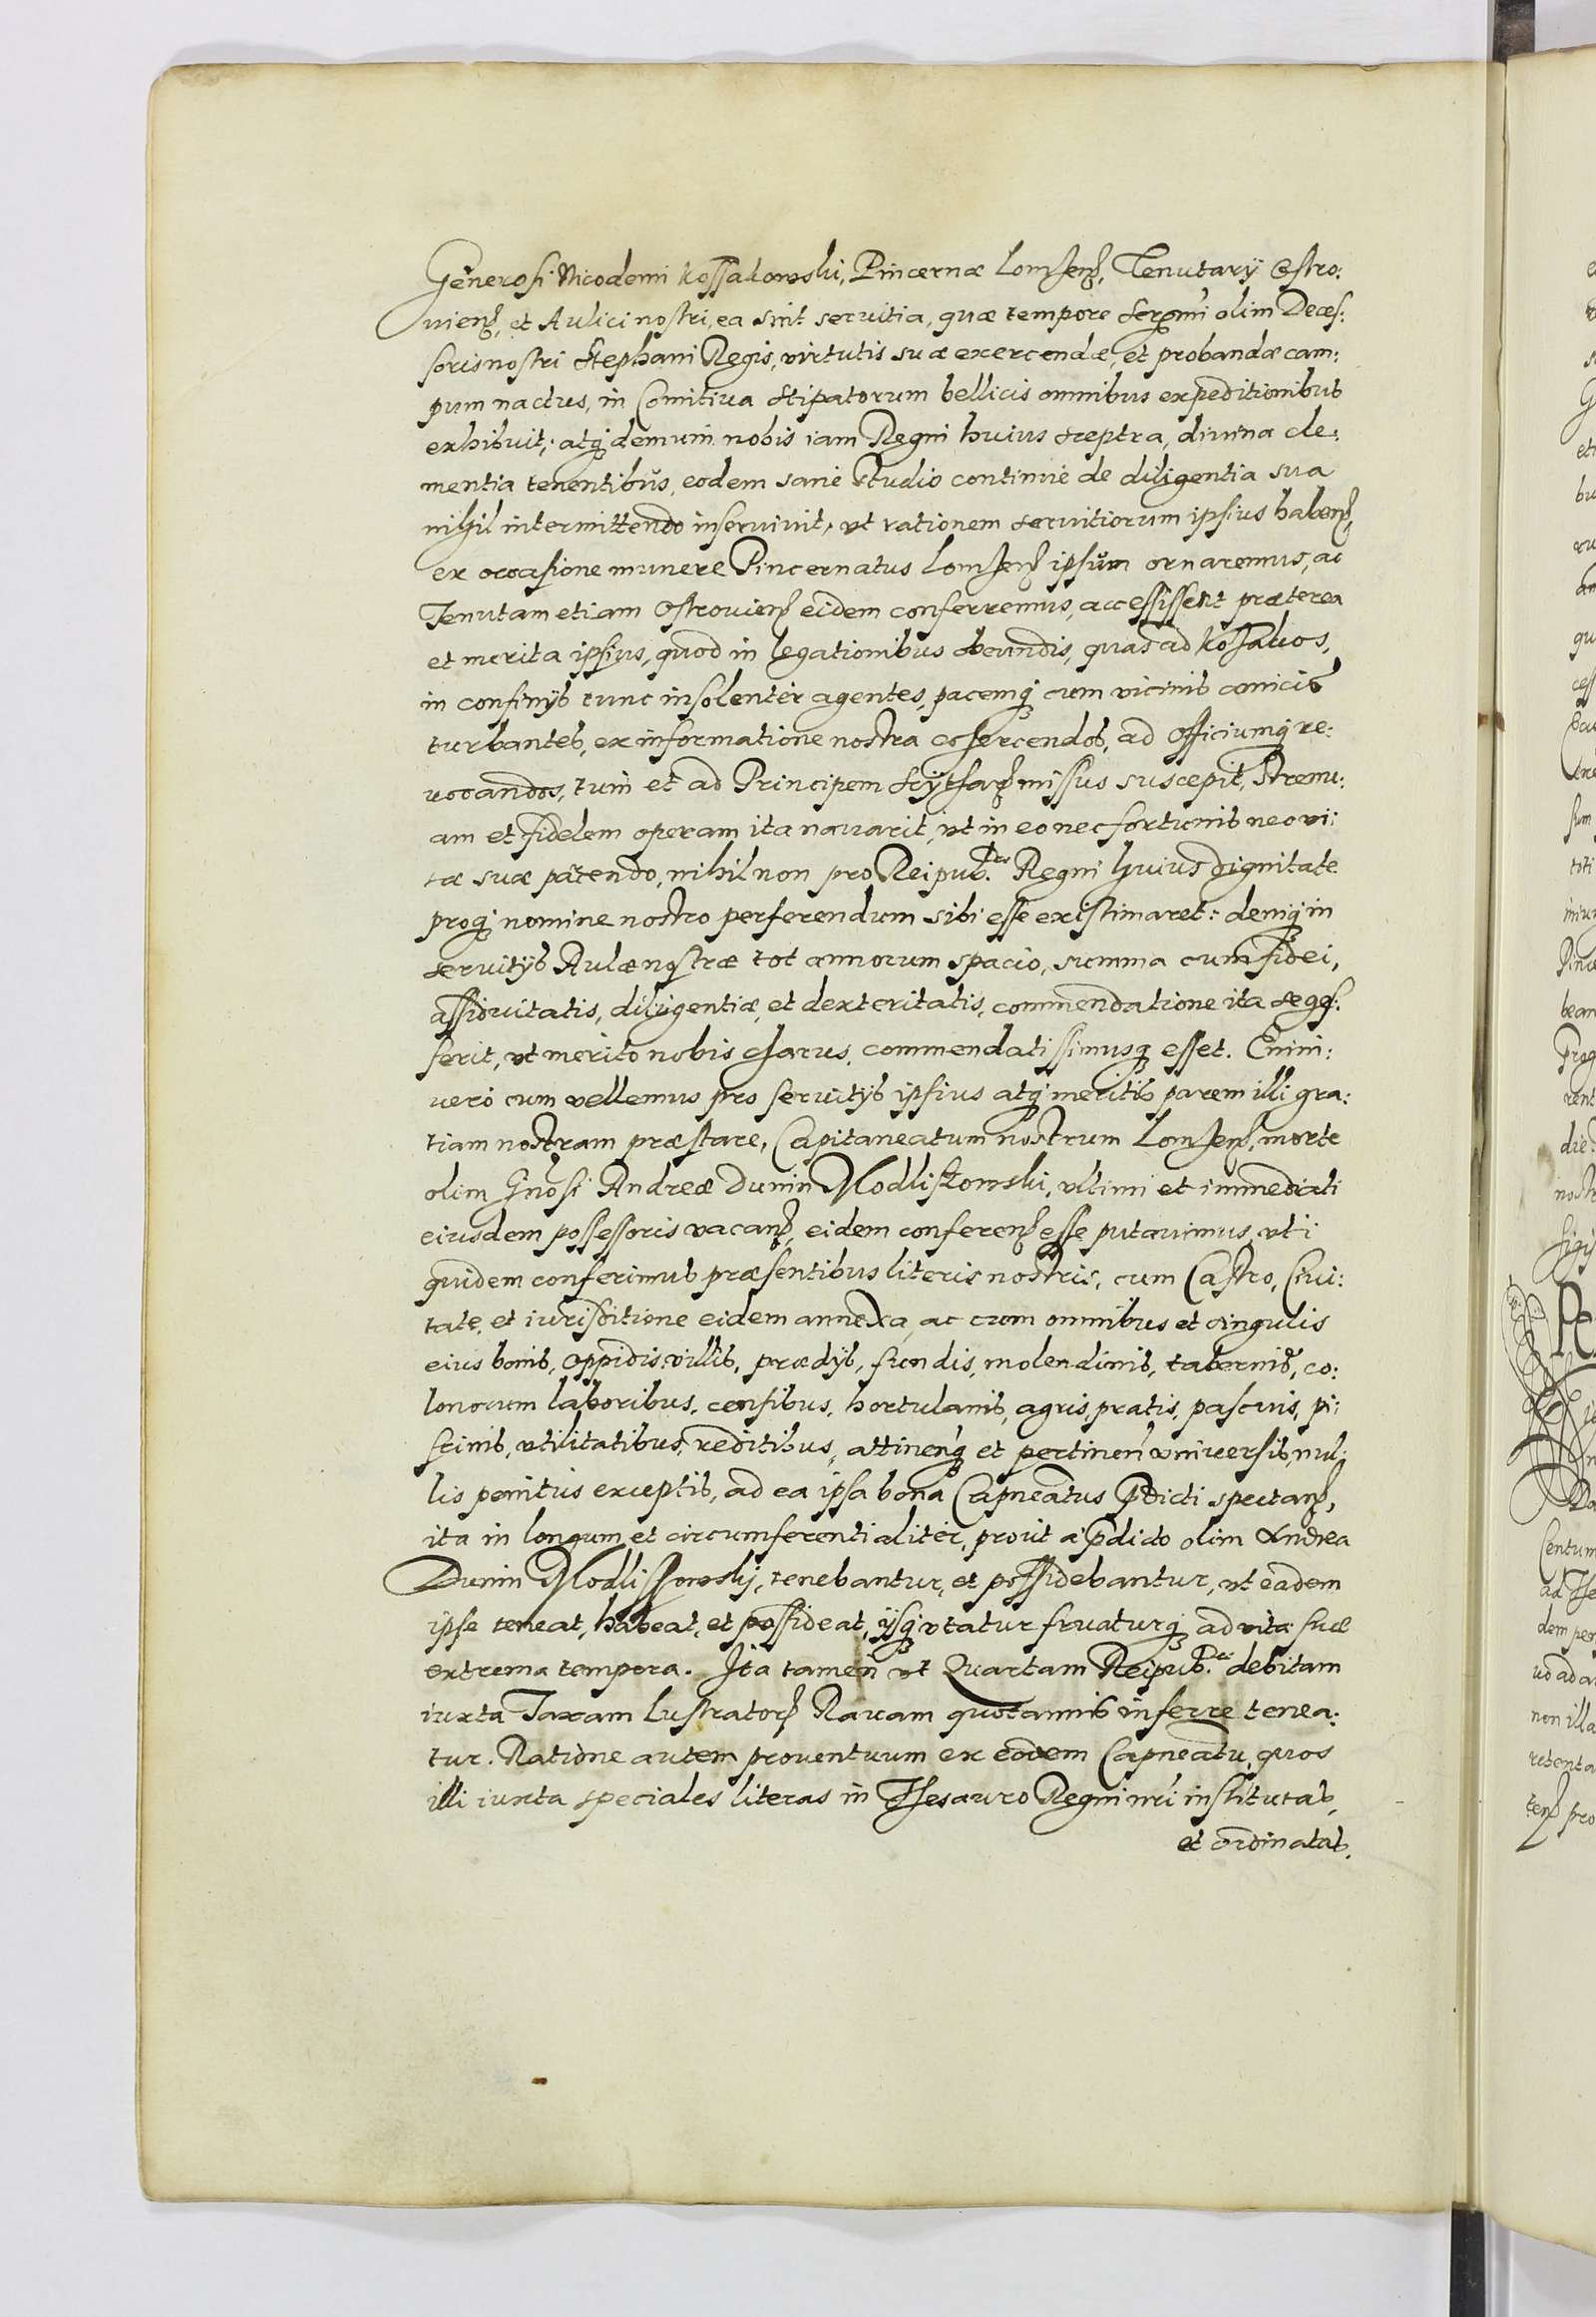 Generosi Nicodemi Kossakowski, Pincernæ Lomzenẜ, Tenutarÿ Ostro:
uienẜ, et Aulici nostri, ea sint seruitia, quæ tempore Serꝫmi olim Deces:
soris nostri Stephani Regis, virtutis suæ exercendæ, et probandæ cam:
pum nactus, in Comitiua Stipatorum bellicis omnibus expeditionibus
exhibuit; atqꝫ demum nobis iam Regni huius sceptra, diuina cle:
mentia tenentibus, eodem sane studio continuè de diligentia sua
nihil intermittendo inseruiuit, vt rationem seruitiorum ipsius habenẜ,
ex occasione munere Pincernatus Lomzenẜ ipsum ornaremus, ac
Tenutam etiam Ostrouienẜ eidem conferremus, accessissent præterea
et merita ipsius, quod in legationibus obeundis, quas ad Kozakos,
in confinÿs tunc insolentèr agentes, pacemqꝫ cum vicinis amicis
turbantes, ex informatione nostra cohercendos, ad Officiumqꝫ re:
uocandos, tum et ad Principem Scÿtharẜ missus suscepit, strenu:
am et fidelem operam ita nauarit, vt in eo nec fortunis nec vi:
tæ suæ parcendo, nihil non pro Reipub. Regni huius dignitate
proqꝫ nomine nostro perferendum sibi esse existimaret: deniqꝫ in
seruitÿs Aulæ nostræ tot annorum spacio, summa cum fidei,
assiduitatis, diligentiæ, et dexteritatis, commendatione ita se ges:
serit, vt merito nobis charus, commendatissimusqꝫ esset. Enim:
uerò cum vellemus pro seruitÿs ipsius atqꝫ meritis parem illi gra:
tiam nostram præstare, Capitaneatum nostrum Lomzenẜ, morte
olim Gnosi Andreæ Dunin Modliszowski, vltimi et immediati
eiusdem possessoris vacanẜ, eidem conferenẜ esse putauimus, vti
quidem conferimus præsentibus literis nostris, cum Castro, Ciui:
tate, et iurisditione eidem annexa, ac cum omnibus et singulis
eius bonis, oppidis, villis, prædÿs, fundis, molendinis, tabernis, co:
lonorum laboribus, censibus, hortulanis, agris, pratis, pascuis, pi:
scinis, vtilitatibus, reditibus, attinenqꝫ et pertinen vniuersis, nul:
lis penitus exceptis, ad ea ipsa bona Capneatus p̃dicti spectanẜ,
ita in longum et circumferentialiter, prout à p̃dicto olim Andrea
Dunin Modliszowskj, tenebantur, et possidebantur, vt eadem
ipse teneat, habeat, et possideat, ÿsqꝫ vtatur fruaturqꝫ ad vitæ suæ
extrema tempora. Ita tamen vt Quartam Reipub. debitam
iuxta Taxam Lustratorẜ Rauam quotannis inferre tenea:
tur. Ratione autem prouentuum ex eodem Capneatu, quos
illi iuxta speciales literas in Thesauro Regni nri institutas,
et ordinatas.